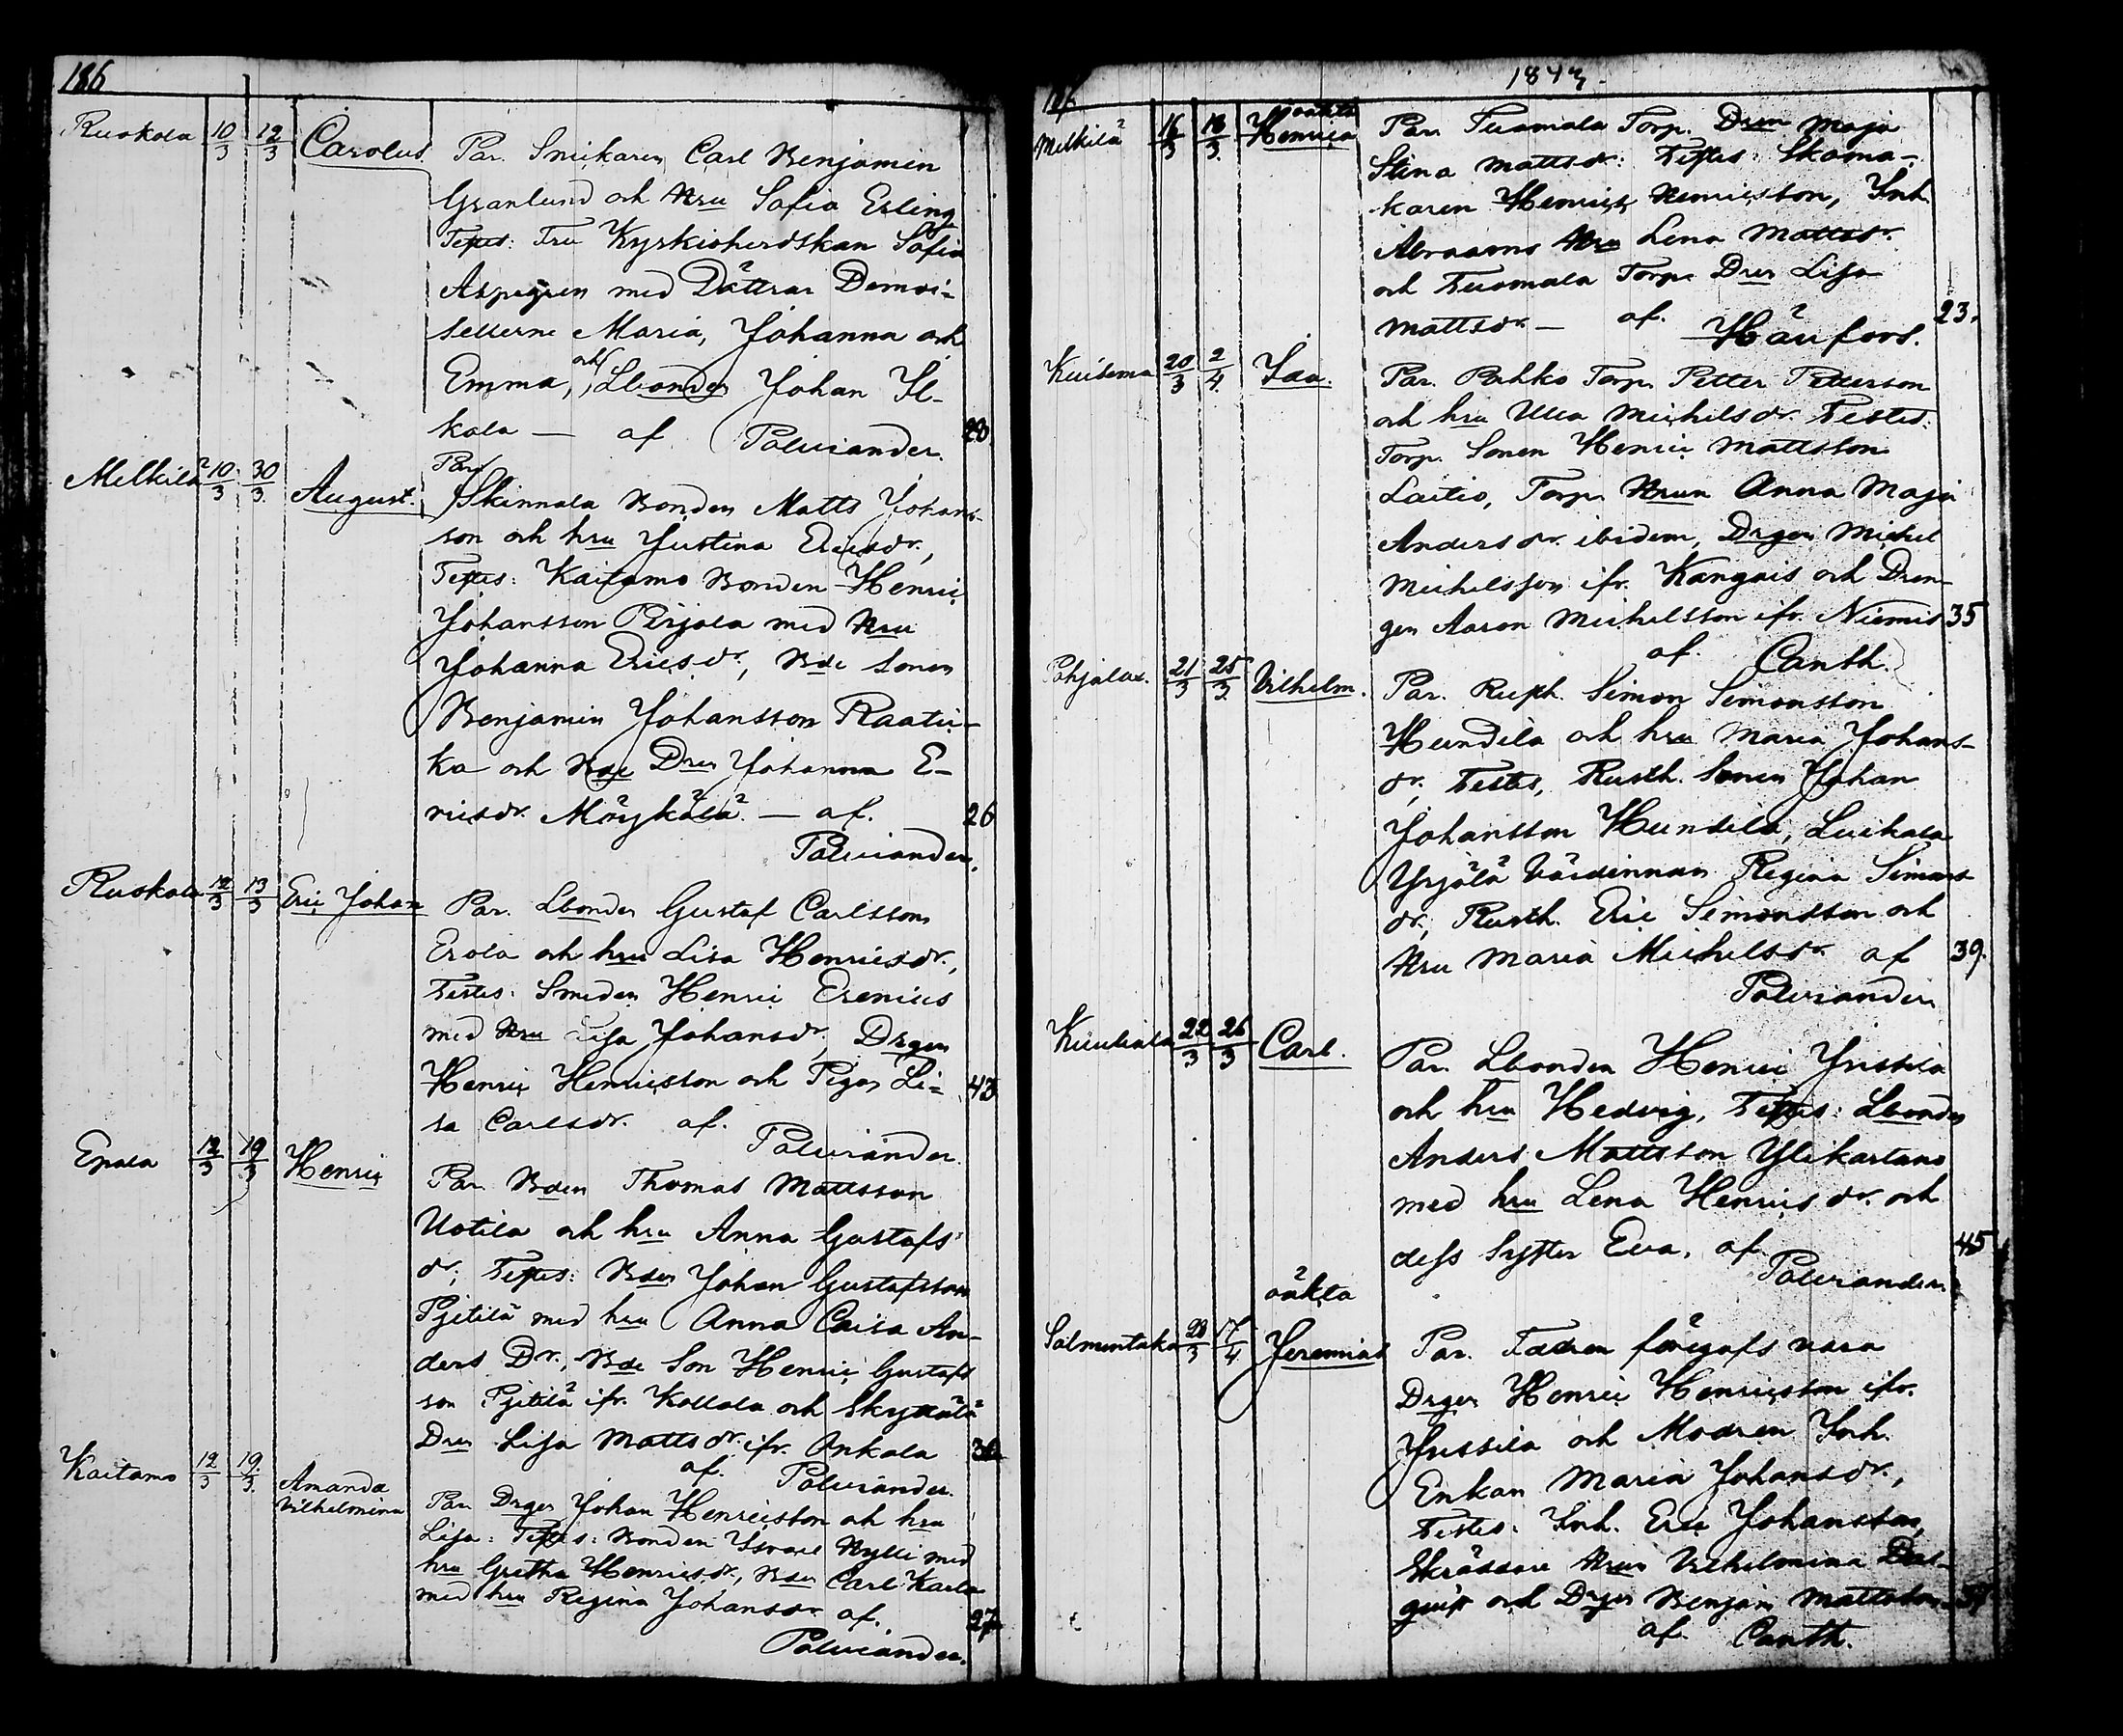 186
Ruskola 10/3 12/3 Carolus. Par. Snickaren Carl Benjamin
Granlund och Hru Sofia Erling
Testes: Fru Kyrkioherdskan Sofia
Aspegren med Döttrar Demoi-
sellerne Maria, Johanna och
Emma, och Lbonden Johan Il-
kala — af Polviander. 28.
Melkilä 10/3 30/3 August. Par. Skinnala Bonden Matts Johans-
son och hru Justina Ericsdr,
Testes: Kaitamo Bonden Henric
Johansson Pirjola med Hru
Johanna Ericsdr, Bde Sonen
Benjamin Johansson Raatii-
ka och Bde Dren Johanna E-
ricsdr. Möykälä. — af. 26
Polviander.
Ruskola 12/3 13/3 Eric Johan Par. Lbonden Gustaf Carlsson
Erola och hru Lisa Henricsdr,
Testes: Smeden Henric Erenius
med Hru Lisa Johansdr, Drgen
Henric Henricsson och Pigan Li-
sa Carlsdr. af. 43
Polviander.
Epala 12/3 19/3 Henric Par. Bden Thomas Mattsson
Uotila och hru Anna Gustafs
dr; Testes: Bden Johan Gustafsson
Pjetilä med hru Anna Caisa An-
ders Dr, Bde Son Henric Gustafs
son Pjetilä ifr. Kollola och Skyttälä
Dren Lisa Mattsdr. ifr. Ankala 30
af. Polviander.
Kaitamo 12/3 19/3 Amanda
Vilhelmina Par. Drgen Johan Henricsson och hru
Lisa: Testes: Bonden Israel Kylli med
hru Gretha Henricsdr, Bden Carl Karla
med hru Regina Johansdr af. 27.
Polviander.
186 1843.
Melkilä 16/3 18/3 oäkta
Henrica Par. Tuomala Torp. Dren Maja
Stina Mattsdr: Testes: Skoma-
karen Henric Henricsson, Inh.
Abrahams Hru Lena Mattsdr.
och Tuomala Torp. Dren Lisa
Mattsdr. — af. Häufors. 23.
Kuisema 20/3 2/4 Ida. Par. Pohko Torp. Petter Petterson
och hru Ulla Michelsdr. Testes:
Torp. Sonen Henric Mattsson
Laitio, Torp. Hrun Anna Maja
Andersdr. ibidem, Drgen Michel
Michelsson ifr. Kangais och Dren-
gen Aaron Michelsson ifr. Niemis 35
af. Canth.
Pohjolax. 21/3 25/3 Vilhelm. Par. Rusth. Simon Simonsson
Hundila och hru Maria Johans-
dr, Testes, Rusth. Sonen Johan
Johansson Hundila, Luikala
Yrjälä Värdinnan Regina Simons
dr, Rusth. Eric Simonsson och
Hru Maria Michelsdr. af 39.
Polviander
22/3 26/3 Carl. Par. Lbonden Henric Jussila
och hru Hedvig, Testes: Lbonden
Anders Mattsson Ylikartano
med hru Lena Henricsdr. och
dess Syster Eva. af 45
Polviander.
oäkta
Salmentaka 28/3 17/4 Jeremias Par. Fadren föregafs vara
Drgen Henric Henricsson ifr.
Jussila och Modren Inh.
Enkan Maria Johansdr,
Testes. Inh. Eric Johansson,
Skräddare Hrun Vilhelmina
och Drgen Benjam Mattsson
af. Canth.